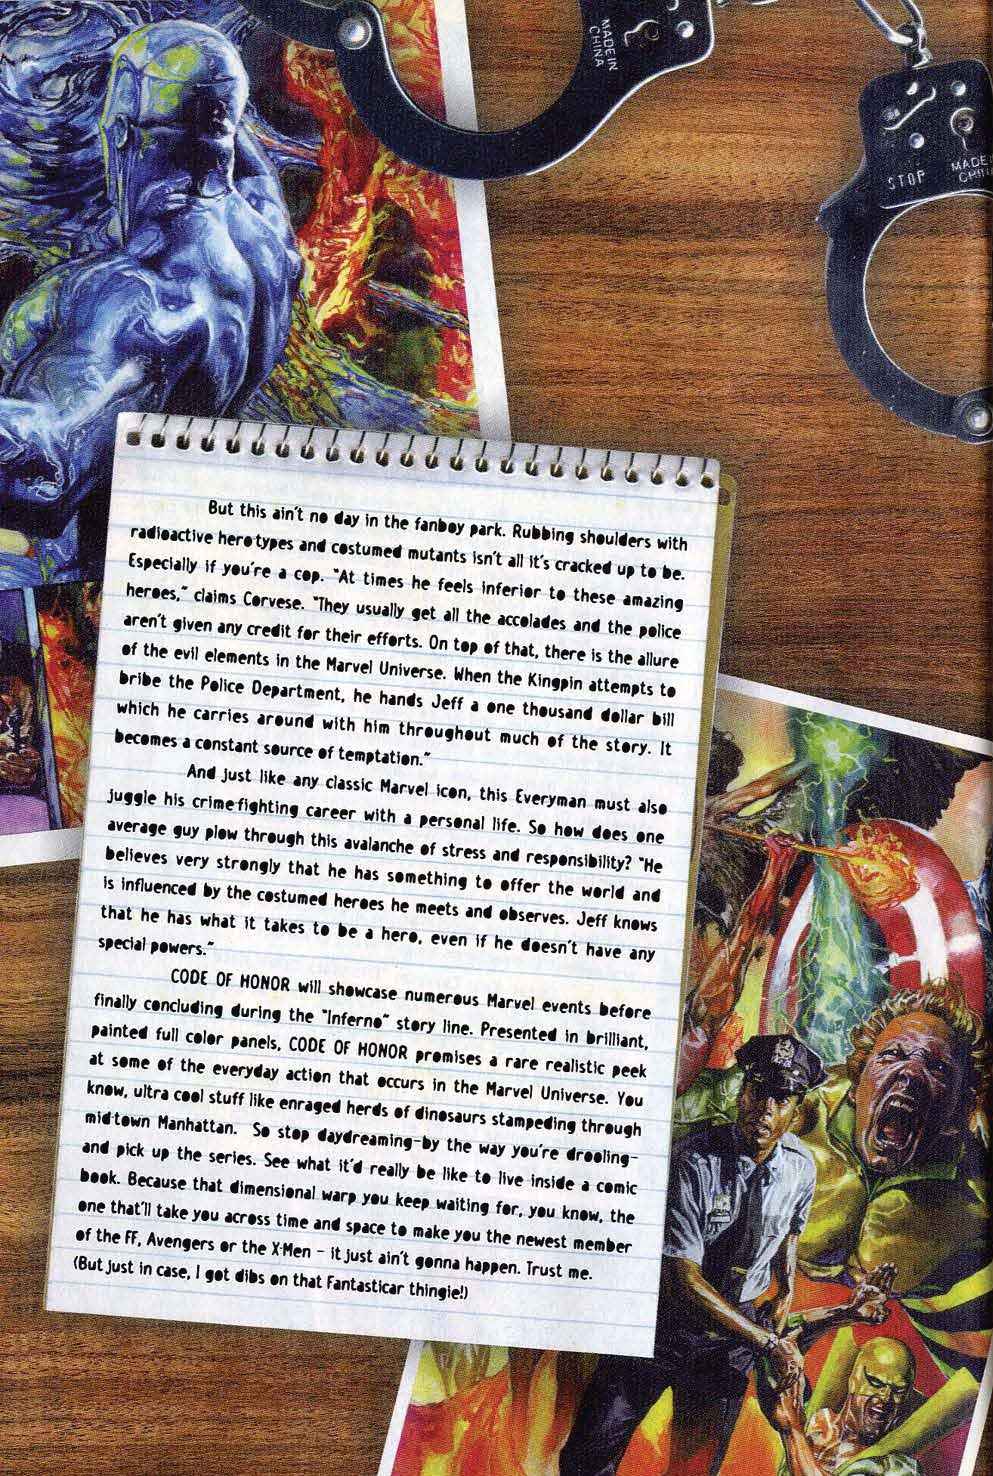 MADE IN
CHINA
STOP
MADE
CHIN
But this ain't no day in the fanboy park. Rubbing shoulders with
radioactive hero-types and costumed mutants isn't all it's cracked up to be.
Especially if you're a cop. "At times he feels inferior to these amazing
heroes," claims Corvese. "They usually get all the accolades and the police
aren't given any credit for their efforts. On top of that, there is the allure
of the evil elements in the Marvel Universe. When the Kingpin attempts to
bribe the Police Department, he hands Jeff a one thousand dollar bill
which he carries around with him throughout much of the story. It
becomes a constant source of temptation."
And just like any classic Marvel icon, this Everyman must also
juggle his crime-fighting career with a personal life. So how does one
average guy plow through this avalanche of stress and responsibility? "He
believes very strongly that he has something to offer the world and
is influenced by the costumed heroes he meets and observes. Jeff knows
that he has what it takes to be a hero, even if he doesn't have any
special powers."
CODE OF HONOR will showcase numerous Marvel events before
finally concluding during the "Inferno" story line. Presented in brilliant,
painted full color panels, CODE OF HONOR promises a rare realistic peek
at some of the everyday action that occurs in the Marvel Universe. You
know, ultra cool stuff like enraged herds of dinosaurs stampeding through
mid-town Manhattan. So stop daydreaming-by the way you're drooling-
and pick up the series. See what it'd really be like to live inside a comic
book. Because that dimensional warp you keep waiting for, you know, the
one that'll take you across time and space to make you the newest member
of the FF, Avengers or the X-Men - it just ain't gonna happen. Trust me.
(But just in case, I got dibs on that Fantasticar thingie!)